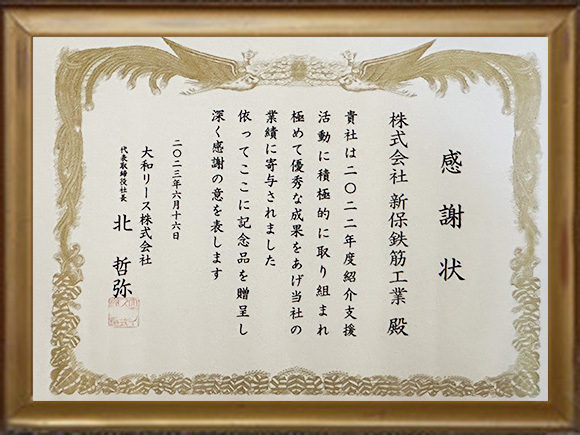 感謝状
株式会社 新保鉄筋工業 殿
貴社は二〇二二年度紹介支援
活動に積極的に取り組まれ
極めて優秀な成果をあげ当社の
業績に寄与されました
依ってここに記念品を贈呈し
深く感謝の意を表します
二〇二三年六月十六日
大和リース株式会社
代表取締役社長 北 哲弥